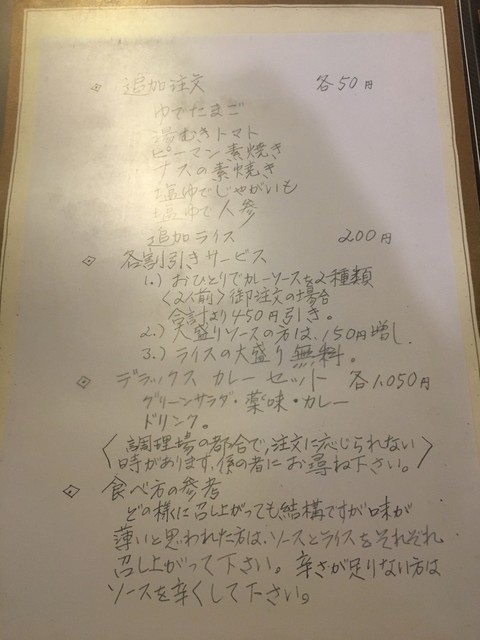 ◇ 追加注文 各50円
ゆでたまご
湯むきトマト
ピーマン素焼き
ナスの素焼き
塩ゆでじゃがいも
塩ゆで人参
追加ライス 200円
◇ 各割引きサービス
1.) おひとりでカレーソースを2種類
〈2人前〉御注文の場合
合計より450円引き。
2.) 大盛りソースの方は、150円増し.
3.) ライスの大盛り無料。
◇ デラックス カレー セット 各1,050円
グリーンサラダ・薬味・カレー
ドリンク。
〈調理場の都合で、注文に応じられない
時があります、係の者にお尋ね下さい。〉
◇ 食べ方の参考
どの様に召し上がっても結構ですが味が
薄いと思われた方は、ソースとライスをそれぞれ
召し上がって下さい。辛さが足りない方は
ソースを辛くして下さい。